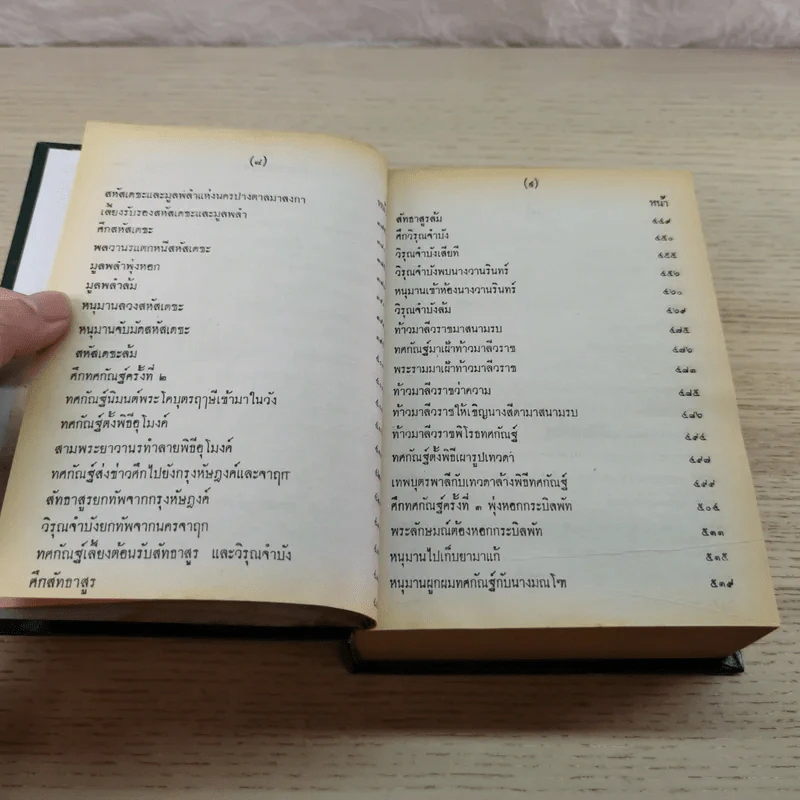 (๘)
สหัสเดชะและมูลพลำแห่งนครปางตาลมาลงกา
เลี้ยงรับรองสหัสเดชะและมูลพลำ
ศึกสหัสเดชะ
พลวานรแตกหนีสหัสเดชะ
มูลพลำพุ่งหอก
มูลพลำล้ม
หนุมานลวงสหัสเดชะ
หนุมานจับมัดสหัสเดชะ
สหัสเดชะล้ม
ศึกทศกัณฐ์ครั้งที่ ๒
ทศกัณฐ์นิมนต์พระโคบุตรฤๅษีเข้ามาในวัง
ทศกัณฐ์ตั้งพิธีอุโมงค์
สามพระยาวานรทำลายพิธีอุโมงค์
ทศกัณฐ์ส่งข่าวศึกไปยังกรุงหัษฎงค์และจาฤก
สัทธาสูรยกทัพจากกรุงหัษฎงค์
วิรุณจำบังยกทัพจากนครจาฤก
ทศกัณฐ์เลี้ยงต้อนรับสัทธาสูร และวิรุณจำบัง
ศึกสัทธาสูร
(๙)
หน้า
สัทธาสูรล้ม ๔๔๙
ศึกวิรุณจำบัง ๔๕๐
วิรุณจำบังเสียที ๔๕๕
วิรุณจำบังพบนางวานรินทร์
หนุมานเข้าห้องนางวานรินทร์
วิรุณจำบังล้ม ๔๖๙
ท้าวมาลีวราชมาสนามรบ ๔๗๕
ทศกัณฐ์มาเฝ้าท้าวมาลีวราช ๔๗๖
พระรามมาเฝ้าท้าวมาลีวราช
ท้าวมาลีวราชว่าความ ๔๘๕
ท้าวมาลีวราชให้เชิญนางสีดามาสนามรบ ๔๘๖
ท้าวมาลีวราชพิโรธทศกัณฐ์ ๔๙๔
ทศกัณฐ์ตั้งพิธีเผารูปเทวดา ๔๙๗
เทพบุตรพาลีกับเทวดาล้างพิธีทศกัณฐ์ ๔๙๙
ศึกทศกัณฐ์ครั้งที่ ๓ พุ่งหอกกระบิลพัท ๕๐๔
พระลักษมณ์ต้องหอกกระบิลพัท ๕๑๑
หนุมานไปเก็บยามาแก้ ๕๑๕
หนุมานผูกผมทศกัณฐ์กับนางมณโฑ ๕๑๙